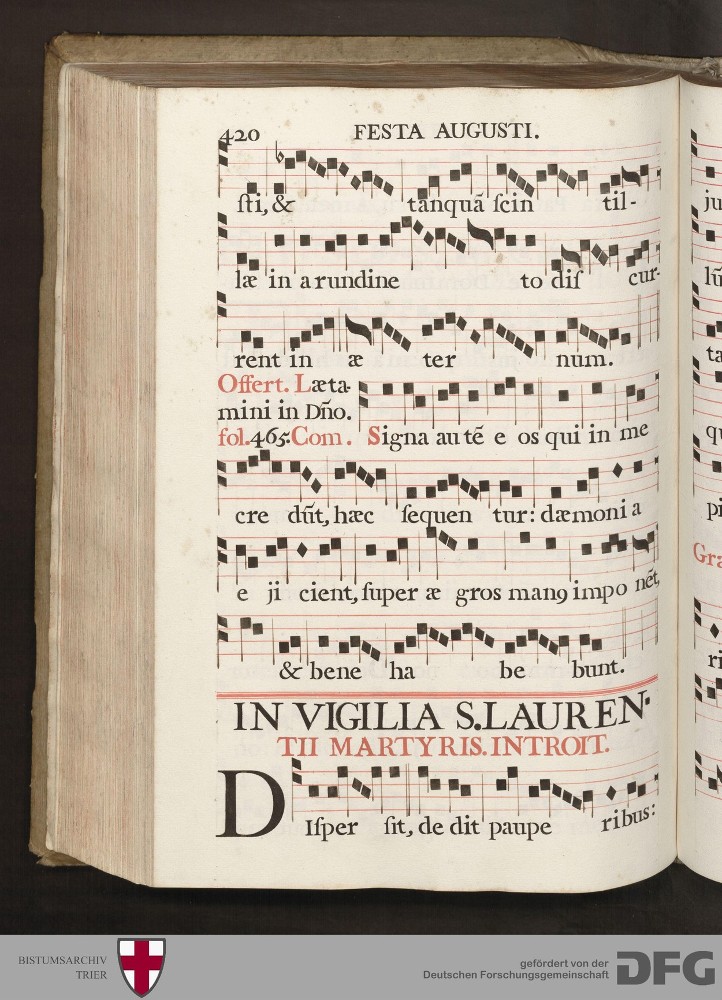 420 FESTA AUGUSTI.
ſti, & tanquã ſcin til-
læ in arundine to diſ cur-
rent in æ ter num.
Offert. Læta-
mini in Dño.
fol. 465. Com. Signa autẽ e os qui in me
cre dũt, hæc ſequen tur: dæmoni a
e ji cient, ſuper æ gros manꝯ impo nẽt,
& bene ha be bunt.
IN VIGILIA S. LAUREN-
TII MARTYRIS. INTROIT.
DIſper ſit, de dit paupe ribus:
ju
lũ
ta
qu
pi
Gra
ri
BISTUMSARCHIV
TRIER
gefördert von der
Deutschen Forschungsgemeinschaft
DFG